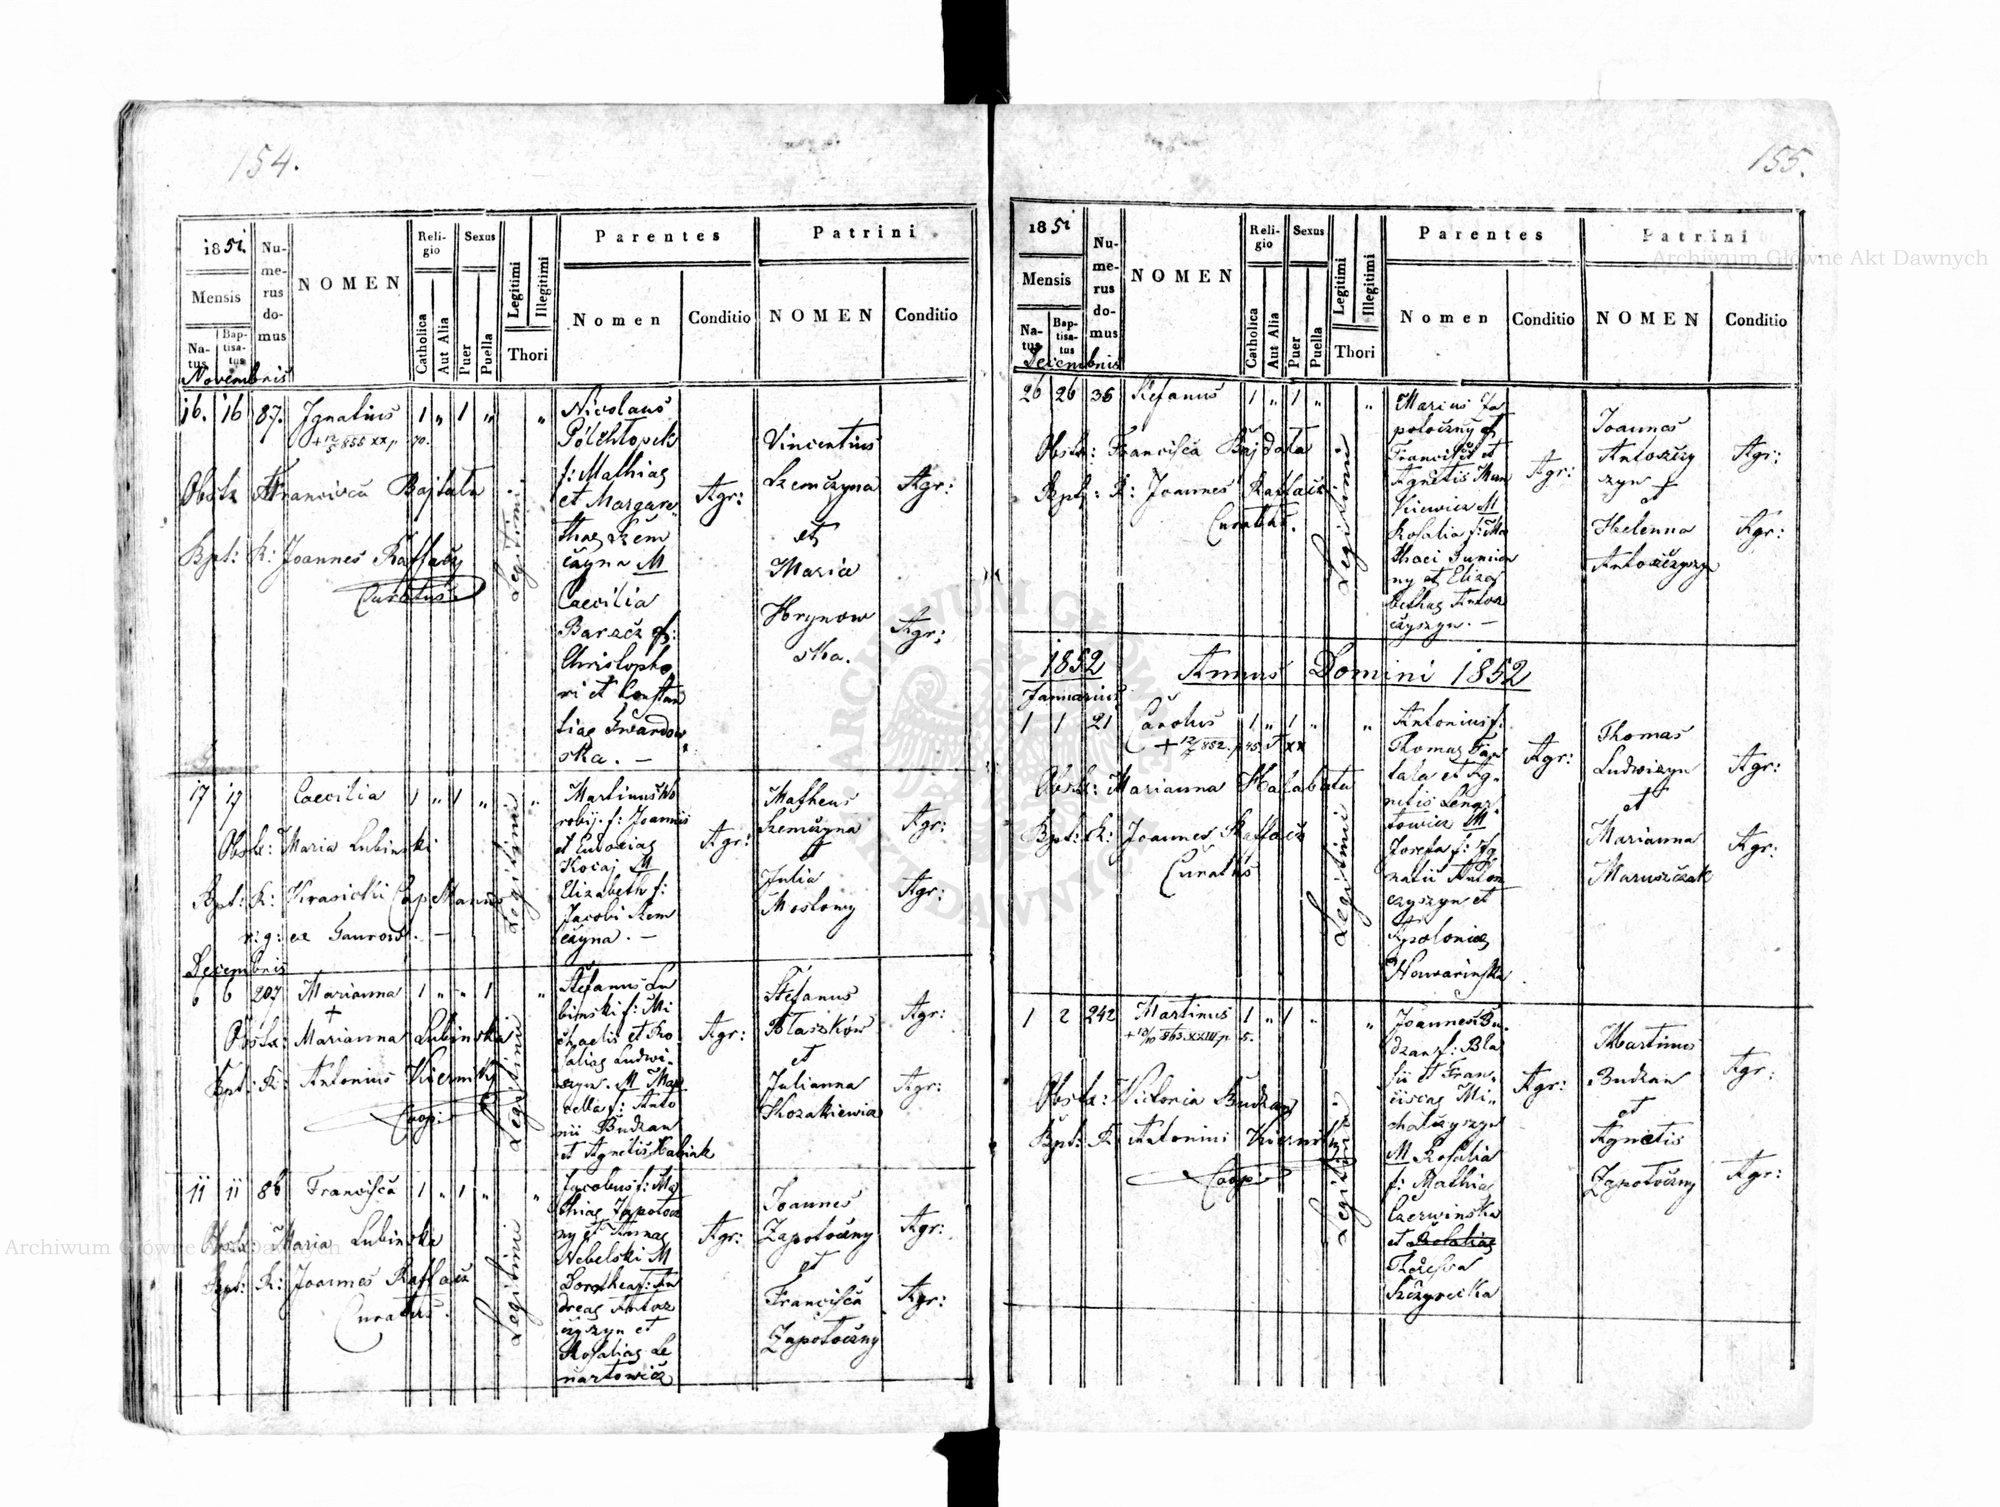 154.
1851
Mensis
Natus
Baptisatus
Numerus domus
NOMEN
Religio
Catholica
Aut Alia
Sexus
Puer
Puella
Legitimi
Illegitimi
Thori
Parentes
Nomen
Conditio
Patrini
NOMEN
Conditio
Novembris
16. 16 87. Ignatius 1 „ 1 „ „
Obstx Francisca Bajtala
Bpt: R: Joannes Raffacz
Curatus.
Legitimi
Nicolaus
Półchłopek
f: Mathias
et Margare„
thas Szem
czyna M
Caecilia
Baracz f:
Christopho
ri et Constan
tias Gwardow
ska. —
Agr:
Vincentius
Szemczyna
et
Maria
Hrynow
ska.
Agr:
Agr:
17 17 Caecilia 1 „ 1 „ „
Obstx: Maria Lubinski
Bpt: R: Krasicki Capellanus
r: g: ex Gaurow. —
Legitimi
Martinus Wo
robij f: Joannis
et Eudoxias
Kocaj M
Elizabeth f:
Jacobi Szem
czyna. —
Agr:
Matheus
Szemczyna
et
Julia
Mostowy
Agr:
Agr:
Decembris
6 6 207 Marianna 1 „ „ 1 „
+
Obstx: Marianna Lubinska
Bpt: R: Antonius Kiernicki
Coop:
Legitimi
Stefanus Lu
binski f: Mi
chaelis et Ro
salias Ludwi„
szyn. M Mar
cella f: Anto
nii Budzan
et Agnetis Kabink
Agr:
Stefanus
Błaszków
et
Julianna
Kozakiewicz
Agr:
Agr:
11 11 86 Francisca 1 „ 1 „ „
Obstx: Maria Lubinska
Bpt: R: Joannes Raffacz
Curatus.
Legitimi
Jacobus f: Ma
thias Zapotocz
ny et Annas
Nebelski M
Dorothea f: An
dreas Antos
czyszyn et
Rosalias Le
nartowicz
Agr:
Joannes
Zapotoczny
et
Francisca
Zapotoczny
Agr:
Agr:
155.
1851
Mensis
Natus
Baptisatus
Numerus domus
NOMEN
Religio
Catholica
Aut Alia
Sexus
Puer
Puella
Legitimi
Illegitimi
Thori
Parentes
Nomen
Conditio
Patrini
NOMEN
Conditio
Decembris
26 26 36 Stefanus 1 „ 1 „ „
Obstx: Francisca Bajdala
Bpt: R: Joannes Raffacz
Curatus.
Legitimi
Marius Za
potoczny f:
Francisci et
Agnetis Man
kiewicz M
Rosalia f: Ma
thaei
ny et Eliza
bethas Antos
czyszyn. —
Agr:
Joannes
Antoszczy
szyn
et
Helenna
Antoszczyszyn
Agr:
Agr:
1852 Annus Domini 1852
Januarius
1 1 21 Carolus 1 „ 1 „ „
Obstx: Marianna Halabata
Bpt: R: Joannes Raffacz
Curatus
Legitimi
Antonius f:
Thomas
et Ag„
netis Lenar
towicz M
Josefa f: Ig
natii Antos
czyszyn et
Apolonias
Nowarinska
Agr:
Thomas
Ludwiszyn
et
Marianna
Maruszczak
Agr:
Agr:
1 2 242 Martinus 1 „ 1 „ „
Obstx: Victoria Budzan
Bpt: R: Antonius Kiernicki
Coop:
Legitimi
Joannes Bu„
dzan f: Bla
sii et Fran„
ciscas Mi„
chalczyszyn
M Rosalia
f: Mathia
Czerwinska
et Rosalias
Theressa
Szczyrecka
Agr:
Martinus
Budzan
et
Agnetis
Zapotoczny
Agr:
Agr:
Archiwum Główne Akt Dawnych
Archiwum Główne Akt Dawnych
ARCHIWUM GŁÓWNE AKT DAWNYCH